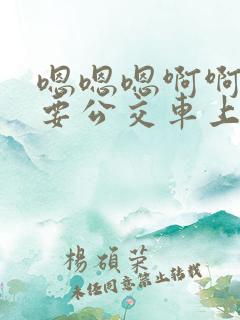 嗯嗯嗯啊啊
要公交車上
楊碩荣
未经同意禁止转载